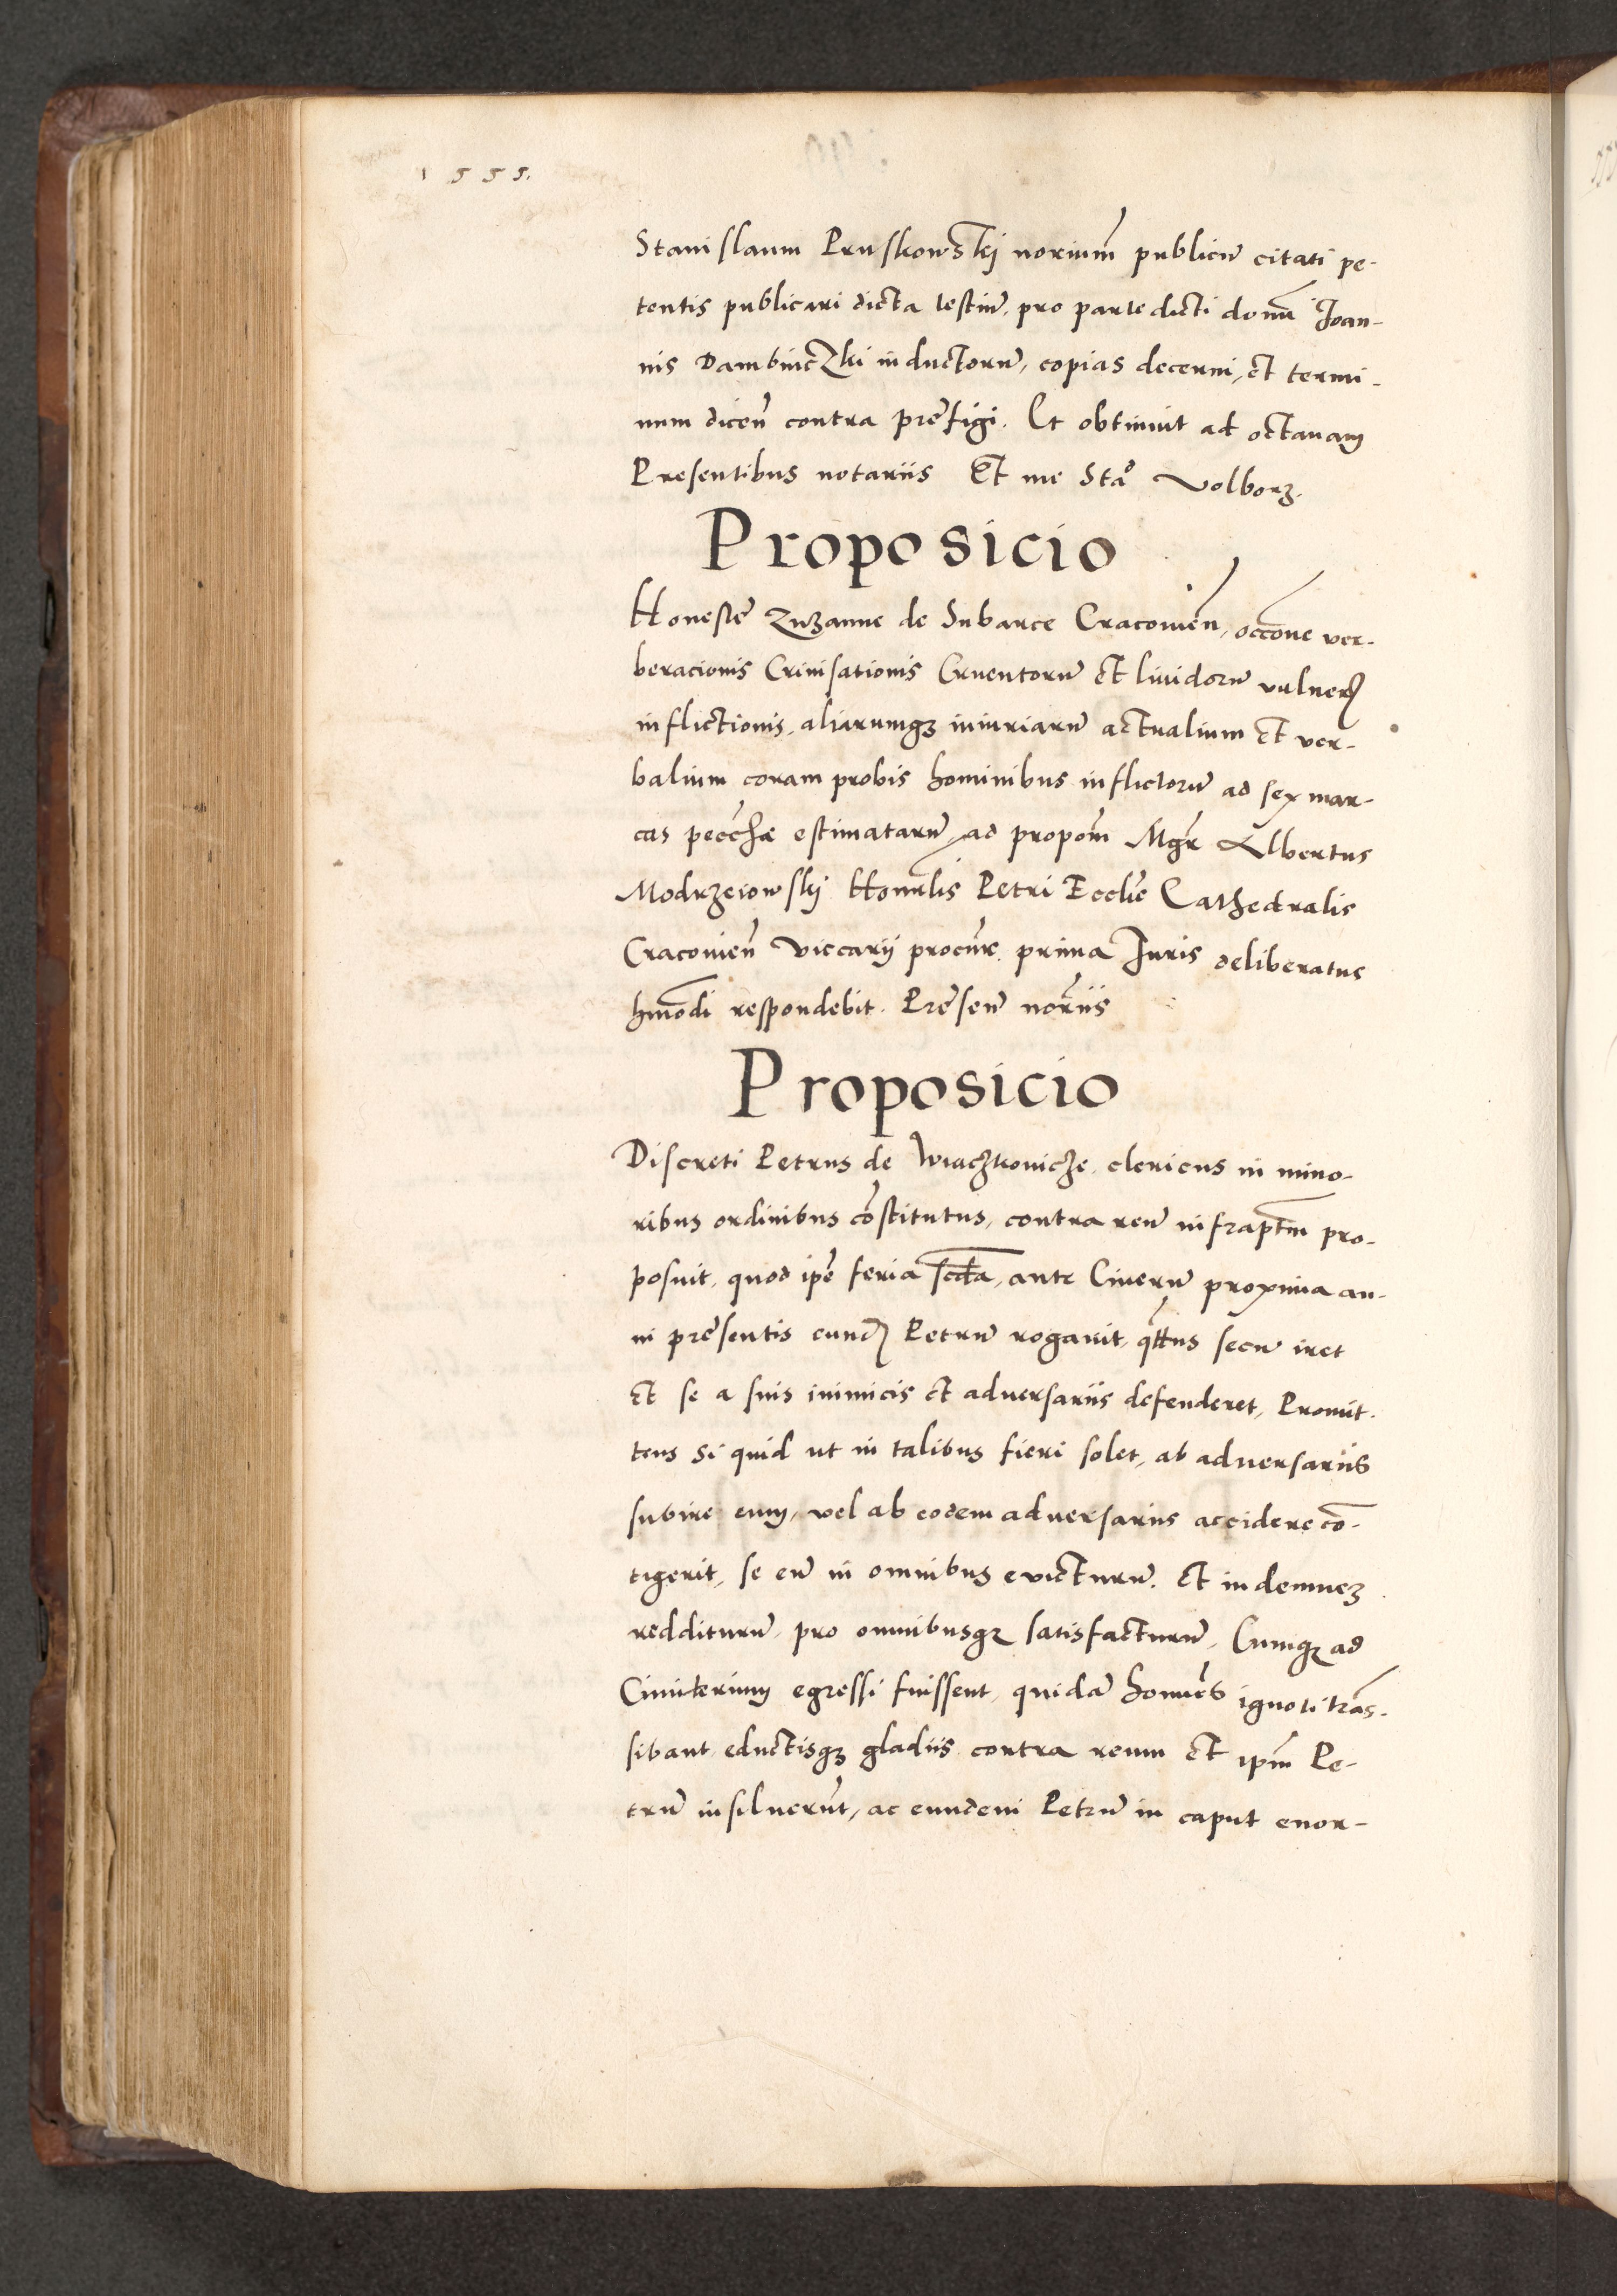 1555.
Stanislaum Pruskowskÿ noriūm publicū citati pe-
tentis publicari dicta testiū, pro parte dicti domī Joan-
nis Dambinczki inductorū, copias decerni, et termi-
num dicen̄ contra prefigi. Et obtinuit ad octauam
Presentibus notariis Et me Stão Volborz.
Proposicio
Honeste Zuzanne de Subarce Cracovien̄, occone ver-
beracionis Crinisationis Cruentorū et liuidorū vulner
inflictionis, aliarumqz iniuriarū actualium et ver-
balium coram probis hominibus inflictorū ad sex mar-
cas pecc̄hæ estimatarū, ad propom̄ Mgr̄ Albertus
Modrzeiowskÿ Honorlis Petri Ecclie Cathedralis
Cracovien̄ viccarÿ procūr. prima Juris deliberatus
hmōdi respondebit. Presen̄ norīis
Proposicio
Discreti Petrus de Wiaczkovicze, clericus in mino-
ribus ordinibus cōstitutus, contra reū infraptm̄ pro-
posuit, quod ipē feria scd̄a, ante Cinerū proxima an-
ni presentis eund Petrū rogavit, qttus secū iret
et se a suis inimicis et adversariis defenderet, Promit-
tens si quid ut in talibus fieri solet, ab adversariis
subire eum, vel ab eodem adversariis accidere cō-
tigerit, se eū in omnibus evicturū. et indemnez
redditurū, pro omnibusqz satisfacturū. Cumqz ad
Cimiterium egressi fuissent, quidā homīes ignoti trās-
sibant eductisqz gladiis contra reum et ipm̄ Pe-
trū insiluerūt, ac eundem Petrū in caput enor-